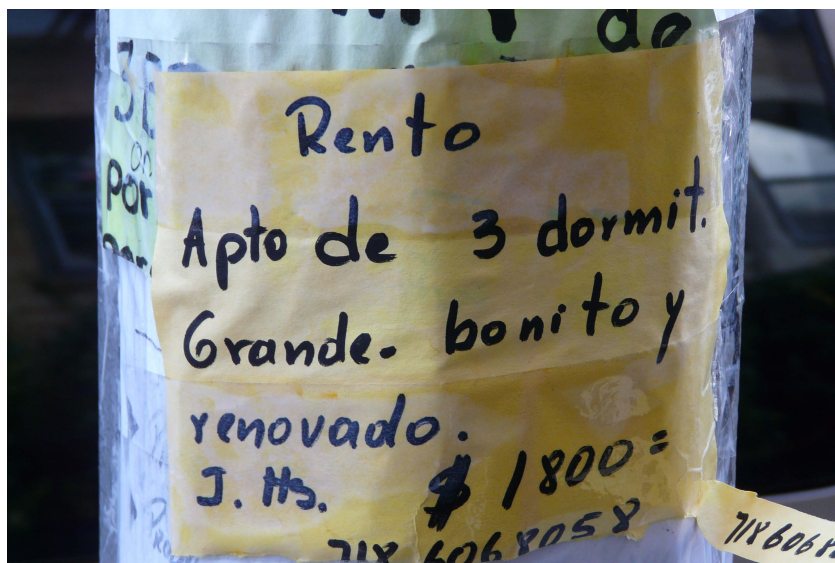 do
por
Rento
Apto de 3 dormit.
Grande. bonito y
renovado.
J. Hs. $ 1800=
718 6068058
718 6068